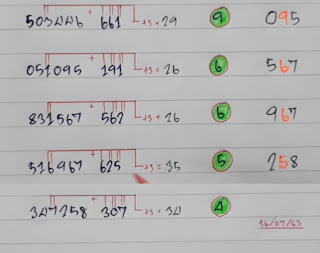 503446 + 661 +3 = 29 9 095
051095 + 191 +3 = 26 6 567
831567 + 562 +3 = 26 6 967
516967 + 625 +3 = 35 5 258
347258 + 307 +3 = 34 4
16/07/63